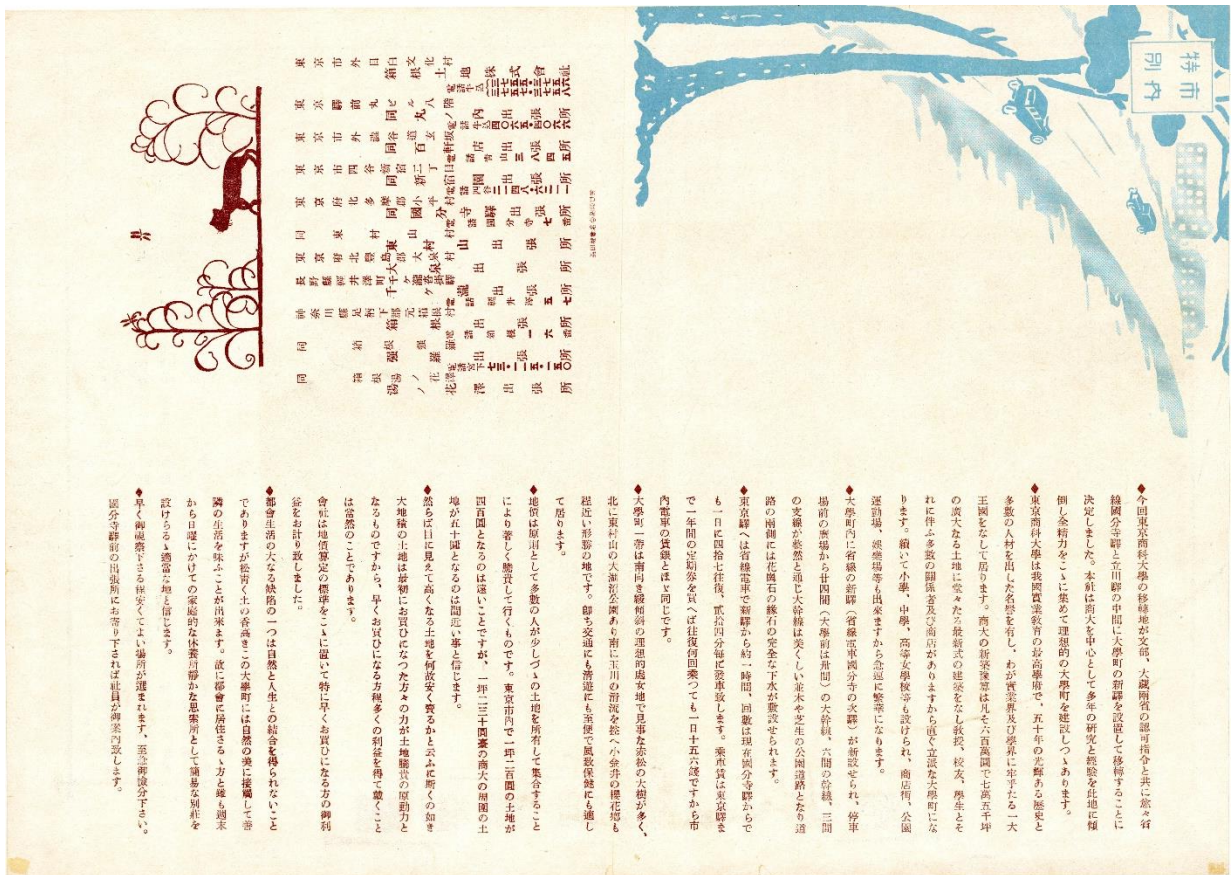 市内
特別
◆今回東京商科大學の移轉地が文部、大藏兩省の認可指令と共に愈々省
線國分寺驛と立川驛の中間に大學町の新驛を設置して移轉することに
決定しました。本社は商大を中心として多年の研究と經驗を此地に傾
倒し全精力をこゝに集めて理想的の大學町を建設しつゝあります。
◆東京商科大學は我國實業敎育の最高學府で、五十年の光輝ある歷史と
多數の人材を出した名譽を有し、わが實業界及び學界に牢乎たる一大
王國をなして居ります。商大の新築豫算は凡そ六百萬圓で七萬五千坪
の廣大なる土地に堂々たる最新式の建築をなし敎授、校友、學生とそ
れに伴ふ多數の關係者及び商店がありますから直ぐ立派な大學町にな
ります。續いて小學、中學、高等女學校等も設けられ、商店街、公園
運動場、娛樂場等も出來ますから急速に繁華になります。
◆大學町內に省線の新驛（省線電車國分寺の次驛）が新設せられ、停車
場前の廣場から廿四間（大學前は卅間）の大幹線、六間の幹線、三間
の支線が整然と通じ大幹線は美くしい並木や芝生の公園道路となり道
路の兩側には花崗石の緣石の完全な下水が敷設せられます。
◆東京驛へは省線電車で新驛から約一時間、回數は現在國分寺驛からで
も一日に四拾七往復、貳拾四分每に發車致します。乘車賃は東京驛ま
で一年間の定期券を買へば往復何回乘つても一日十五六錢ですから市
內電車の賃銀とほゞ同じです。
◆大學町一帶は南向き緩傾斜の理想的處女地で見事な赤松の大樹が多く、
北に東村山の大湖沼公園あり南に玉川の淸流を控へ小金井の櫻花鄕も
程近い形勝の地です。卽ち交通にも淸遊にも至便で風致保健にも適し
て居ります。
◆地價は原則として多數の人が少しづゝの土地を所有して集合すること
により著しく騰貴して行くものです。東京市內で一坪二百圓の土地が
四百圓となるのは遠いことですが、一坪二三十圓臺の商大の周圍の土
地が五十圓となるのは間近い事と信じます。
◆然らば目に見えて高くなる土地を何故安く賣るかと云ふに斯くの如き
大地積の土地は最初にお買ひになつた方々の力が土地騰貴の原動力と
なるものですから、早くお買ひになる方程多くの利益を得て戴くこと
は當然のことであります。
會社は地價算定の標準をこゝに置いて特に早くお買ひになる方の御利
益をお計り致しました。
◆都會生活の大なる缺陷の一つは自然と人生との結合を得られないこと
でありますが松靑く土の香高きこの大學町には自然の美に接觸して善
隣の生活を味ふことが出來ます。故に都會に居住さるゝ方と雖も週末
から日曜にかけての家庭的な休養所靜かな思索所として簡易な別莊を
設けらるゝ適當な地と信じます。
◆早く御視察下さる程安くてよい場所が選まれます、至急御檢分下さい。
國分寺驛前の出張所にお寄り下されば社員が御案內致します。
東京市外目白文化村
箱根土地株式會社
東京驛前丸ビル八階
同丸ノ內出張所
東京市外澁谷道玄坂
同百軒店出張所
東京市四谷新宿二丁目
同新宿園出張所
東京府北多摩郡小平村
同國分寺驛出張所
同東村山村
東村山出張所
東京府北豐島郡大泉村
大泉出張所
長野縣輕井澤町沓掛驛
千ケ瀧出張所
神奈川縣足柄下郡元箱根村
箱根出張所
同箱根強羅
強羅出張所
同箱根湯ノ花澤
湯ノ花澤出張所